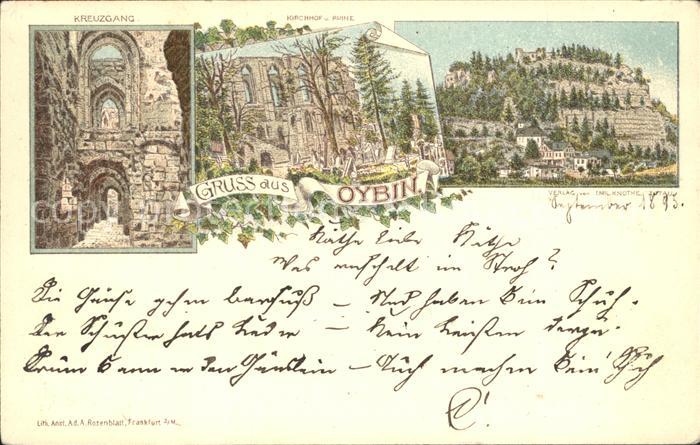 KREUZGANG
KIRCHHOF u. RUINE
GRUSS aus OYBIN.
VERLAG von EMIL KNOTHE, ZITTAU
September 1895.
Käthe liebe Käthe
Was raschelt im Stroh?
Die Gänse gehen barfuß – Und haben kein Schuh.
Der Schuster hats Leder – Kein Leisten dazu.
Drum kann er den Gänslein – Auch machen kein Schuh
Lith. Anst. Ad. A. Rosenblatt, Frankfurt a/M.